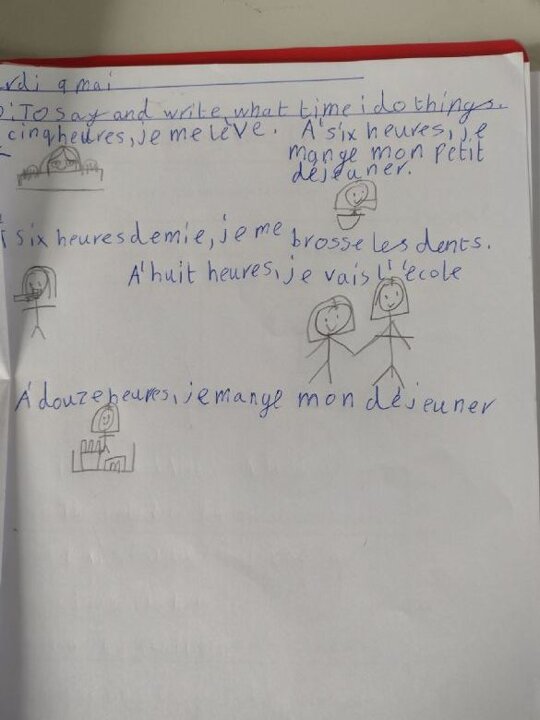 rdi 9 mai
O: To say and write what time i do things.
cinq heures, je me lève. A' six heures, je
mange mon petit
déjeuner.
six heures demie, je me brosse les dents.
A' huit heures, je vais l'école
A' douze heures, je mange mon déjeuner